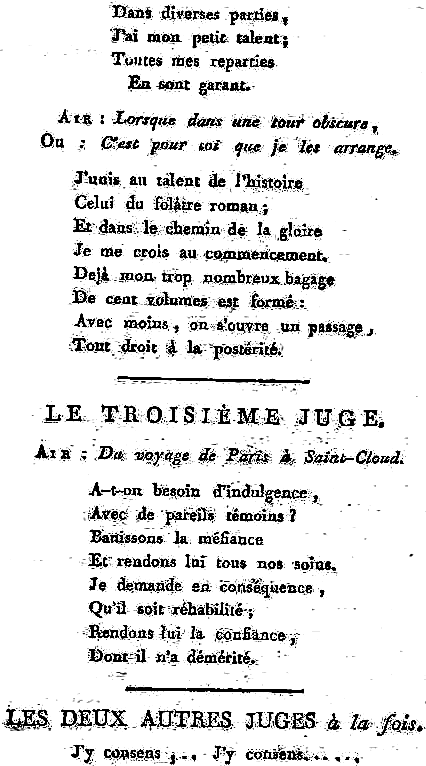 Dans diverses parties,
J'ai mon petit talent;
Toutes mes reparties
En sont garant.
AIR : Lorsque dans une tour obscure,
Ou : C'est pour toi que je les arrange.
J'unis au talent de l'histoire
Celui du folâtre roman;
Et dans le chemin de la gloire
Je me crois au commencement.
Dejà mon trop nombreux bagage
De cent volumes est formé:
Avec moins, on s'ouvre un passage,
Tout droit à la postérité.
LE TROISIÈME JUGE.
AIR : Du voyage de Paris à Saint-Cloud.
A-t-on besoin d'indulgence,
Avec de pareils témoins?
Banissons la méfiance
Et rendons lui tous nos soins.
Je demande en conséquence,
Qu'il soit réhabilité;
Rendons lui la confiance,
Dont il n'a démérité.
LES DEUX AUTRES JUGES à la fois.
J'y consens,.. J'y consens.....